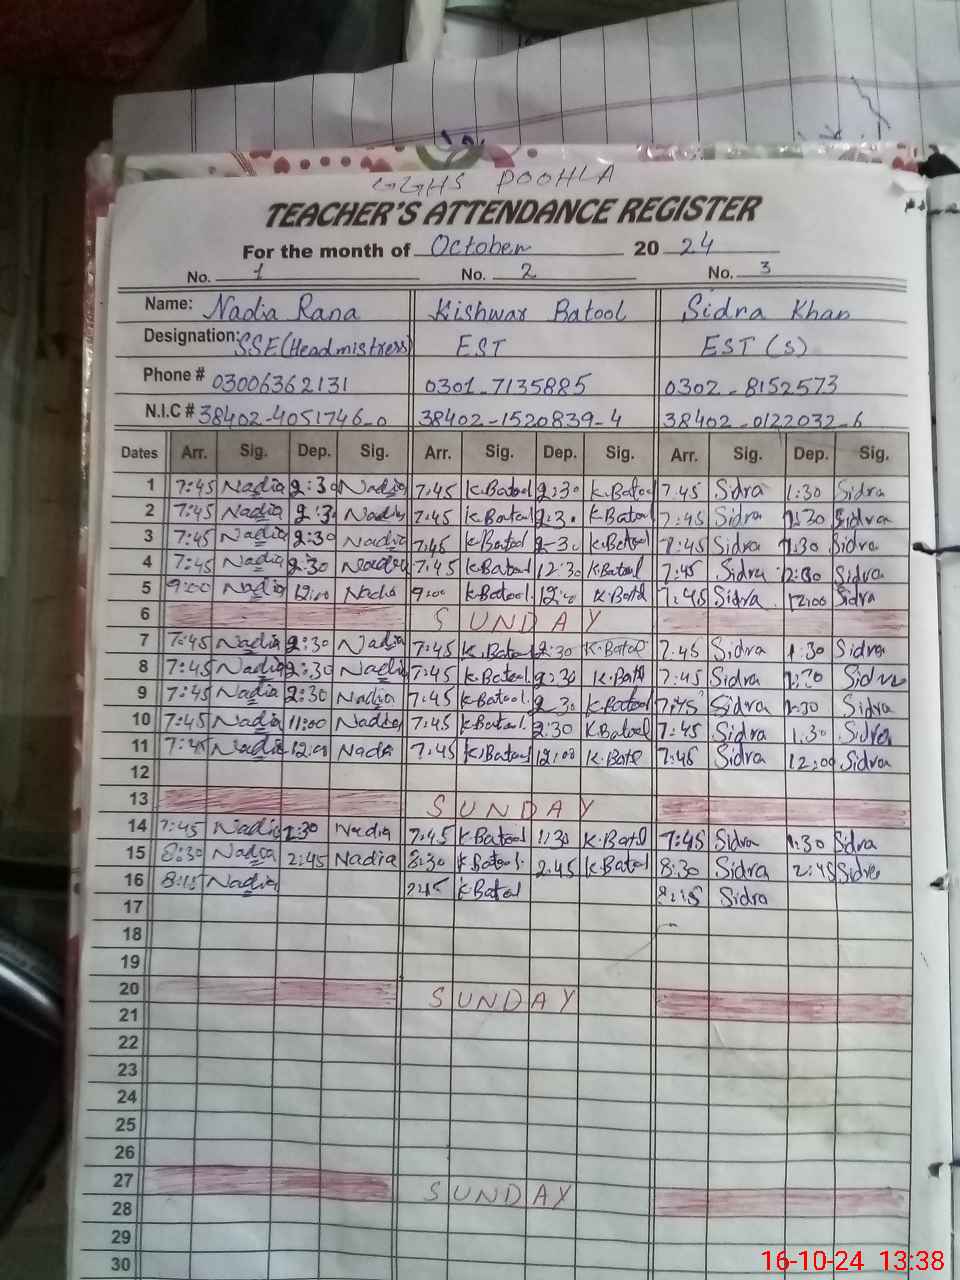 GGHS POOHLA
TEACHER'S ATTENDANCE REGISTER
For the month of October 20 24
No. 1 No. 2 No. 3
Name: Nadia Rana Kishwar Batool Sidra Khan
Designation: SSE (Headmistress) EST EST (S)
Phone # 03006362131 0301-7135885 0302-8152573
N.I.C # 38402-4051746-0 38402-1520839-4 38402-0122032-6
Dates Arr. Sig. Dep. Sig. Arr. Sig. Dep. Sig. Arr. Sig. Dep. Sig.
1 7:45 Nadia 2:30 Nadia 7:45 K.Batool 2:30 K.Batool 7:45 Sidra 1:30 Sidra
2 7:45 Nadia 2:3 Nadia 7:45 K.Batool 2:3 K.Batool 7:45 Sidra 1:30 Sidra
3 7:45 Nadia 2:30 Nadia 7:45 K.Batool 2:3 K.Batool 7:45 Sidra 1:30 Sidra
4 7:45 Nadia 2:30 Nadia 7:45 K.Batool 12:30 K.Batool 7:45 Sidra 12:30 Sidra
5 9:00 Nadia 12:00 Nadia 9:00 K.Batool 12:0 K.Batool 7:45 Sidra 12:00 Sidra
6 SUNDAY
7 7:45 Nadia 2:30 Nadia 7:45 K.Batool 2:30 K.Batool 7:45 Sidra 1:30 Sidra
8 7:45 Nadia 2:30 Nadia 7:45 K.Batool 2:30 K.Batl 7:45 Sidra 1:30 Sidra
9 7:45 Nadia 2:30 Nadia 7:45 K.Batool 2:30 K.Batool 7:45 Sidra 1:30 Sidra
10 7:45 Nadia 11:00 Nadia 7:45 K.Batool 2:30 K.Batool 7:45 Sidra 1:30 Sidra
11 7:45 Nadia 12:00 Nadia 7:45 K.Batool 12:00 K.Batl 7:45 Sidra 12:00 Sidra
12
13 SUNDAY
14 7:45 Nadia 1:30 Nadia 7:45 K.Batool 1:30 K.Batl 7:45 Sidra 1:30 Sidra
15 8:30 Nadia 2:45 Nadia 8:30 K.Batool 2:45 K.Batool 8:30 Sidra 2:45 Sidra
16 8:15 Nadia K.Batool 8:15 Sidra
17
18
19
20 SUNDAY
21
22
23
24
25
26
27 SUNDAY
28
29
30
16-10-24 13:38